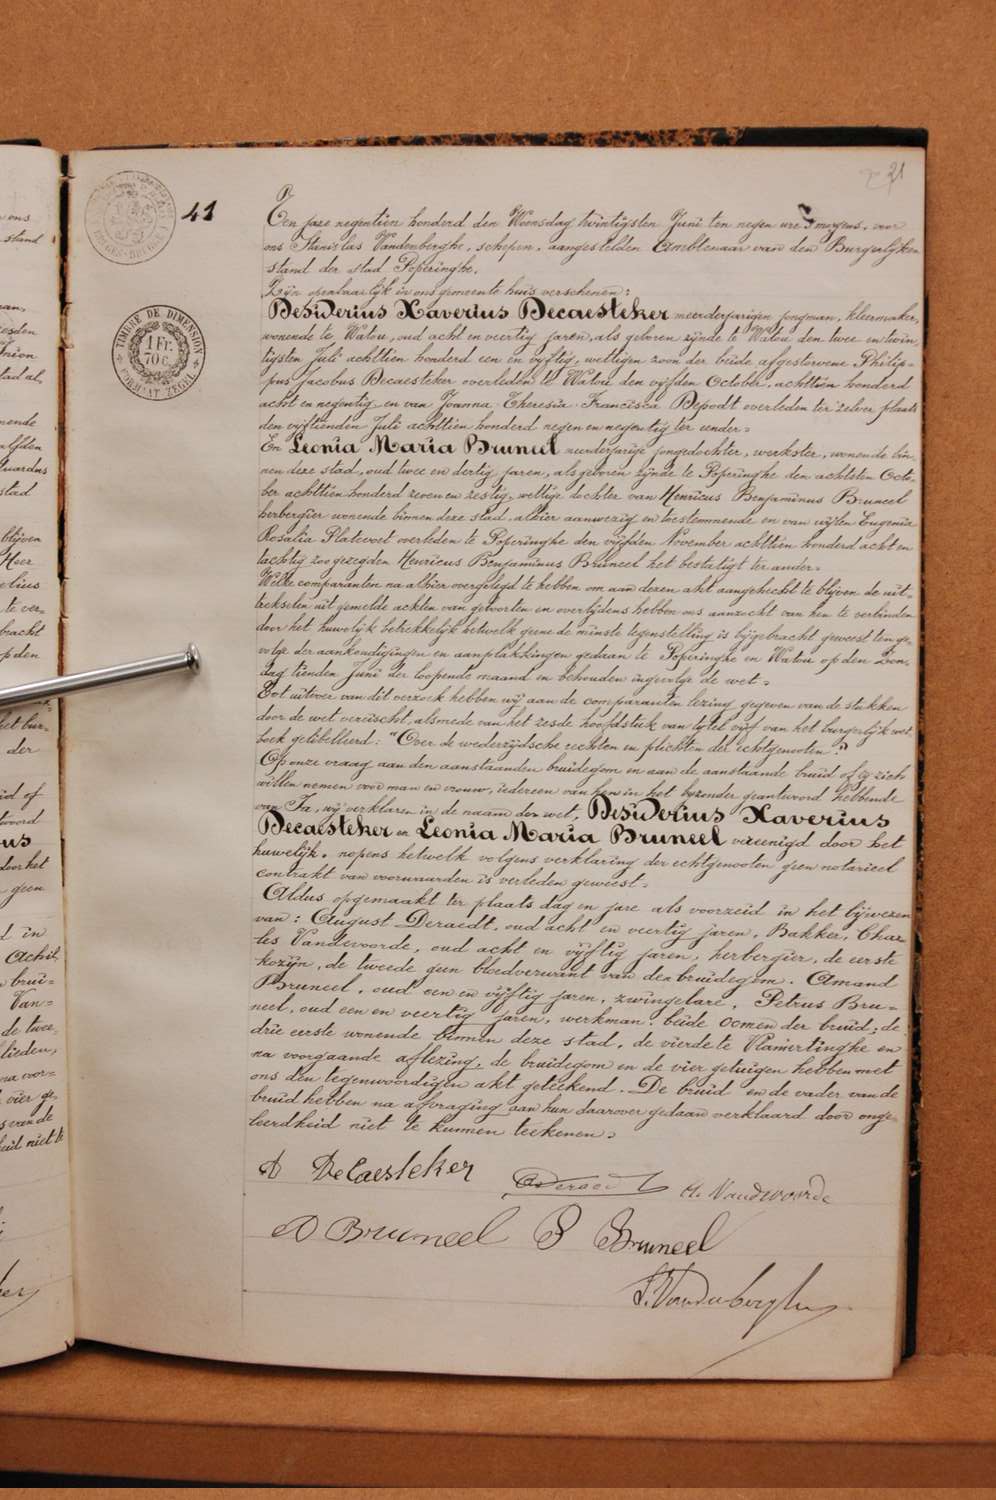 21
41
TIMBRE DE DIMENSION
1 Fr. 70 c.
FORMAAT ZEGEL
Een jare negentien honderd den Woensdag twintigsten Juni ten negen ure 's morgens, voor
ons Stanislas Vandenberghe, schepen, aangestelden Ambtenaar van den Burgerlijken
stand der stad Poperinghe.
Zijn openbaarlijk in ons gemeente huis verschenen:
Desiderius Xaverius Decaesteker meerderjarigen jongman, kleermaker,
wonende te Watou, oud acht en veertig jaren, als geboren zijnde te Watou den twee en twin
tigsten Juli achttien honderd een en vijftig, wettigen zoon der beide afgestorvene Philip-
pus Jacobus Decaesteker overleden te Watou den vijfden October, achttien honderd
acht en negentig en van Joanna Theresia Francisca Depodt overleden ter zelver plaats
den vijftienden Juli achttien honderd negen en negentig ter eender=
En Leonia Maria Bruneel meerderjarige jongedochter, werkster, wonende bin-
nen deze stad, oud twee en dertig jaren, als geboren zijnde te Poperinghe den achtsten Octo-
ber achttien honderd zeven en zestig, wettige dochter van Henricus Benjaminus Bruneel
herbergier wonende binnen deze stad, alhier aanwezig en toestemmende en van wijlen Eugenia
Rosalia Platevoet overleden te Poperinghe den vijfden November achttien honderd acht en
tachtig zoo gezegden Henricus Benjaminus Bruneel het bestatigt ter ander=
Welke comparanten na alhier overgelegd te hebben om aan dezen akt aangehecht te blijven de uit-
trekselen uit gemelde akten van geboorten en overlijdens hebben ons aanzocht van hen te verbinden
door het huwelijk betrekkelijk hetwelk geene de minste tegenstelling is bijgebracht geweest ten ge-
volge der aankondigingen en aanplakkingen gedaan te Poperinghe en Watou op den Zon-
dag tienden Juni der loopende maand en behouden ingevolge de wet=
Tot uitvoer van dit verzoek hebben wij aan de comparanten lezing gegeven van de stukken
door de wet vereischt, alsmede van het zesde hoofdstuk van tytel vijf van het burgerlijk wet
boek getitelleerd: "Over de wederzijdsche rechten en plichten der echtgenooten".
Op onze vraag aan den aanstaanden bruidegom en aan de aanstaande bruid of zij zich
willen nemen voor man en vrouw, iedereen van hen in het byzonder geantwoord hebbende
van Ja, wij verklaren in de naam der wet, Desiderius Xaverius
Decaesteker en Leonia Maria Bruneel vereenigd door het
huwelijk, nopens hetwelk volgens verklaring der echtgenooten geen notarieel
contrakt van voorwaarden is verleden geweest=
Aldus opgemaakt ter plaats dag en jare als voorzeid in het bijwezen
van: August Deraedt, oud acht en veertig jaren, Bakker, Char-
les Vandevoorde, oud acht en vijftig jaren, herbergier, de eerste
kozijn, de tweede geen bloedverwant van den bruidegom. Amand
Bruneel, oud een en vijftig jaren, zwingelare, Petrus Bru-
neel, oud een en veertig jaren, werkman, beide oomen der bruid; de
drie eerste wonende binnen deze stad, de vierde te Vlamertinghe en
na voorgaande aflezing, de bruidegom en de vier getuigen hebben met
ons den tegenwoordigen akt geteekend. De bruid en de vader van de
bruid hebben na afvraging aan hun daarover gedaan verklaard door onge-
leerdheid niet te kunnen teekenen=
D DeCaesteker
A Deraedt
C. Vandevoorde
A Bruneel
P Bruneel
S. Vandenberghe